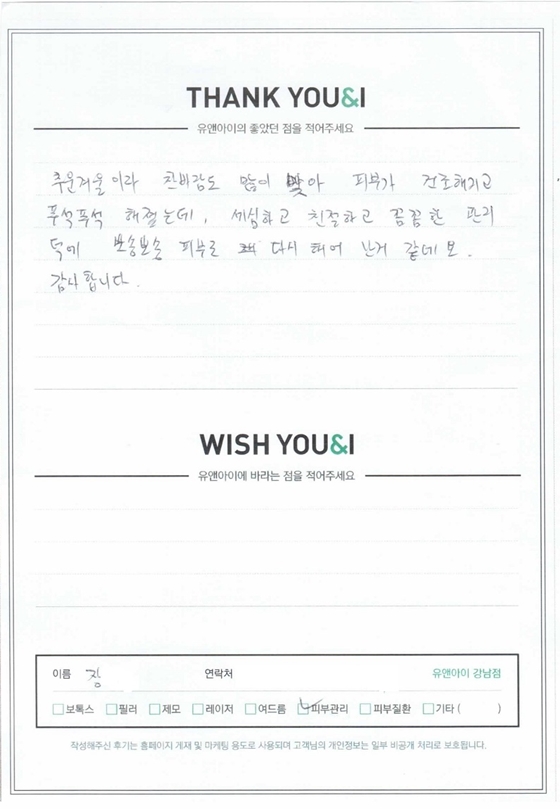 THANK YOU&I
유앤아이의 좋았던 점을 적어주세요
추운겨울이라 찬바람도 많이 맞아 피부가 건조해지고
푸석푸석 해졌는데, 세심하고 친절하고 꼼꼼한 관리
덕에 뽀송뽀송 피부로 다시 태어 난거 같네요.
감사합니다.
WISH YOU&I
유앤아이에 바라는 점을 적어주세요
이름 장 연락처 유앤아이 강남점
보톡스 필러 제모 레이저 여드름 피부관리 피부질환 기타 ( )
작성해주신 후기는 홈페이지 게재 및 마케팅 용도로 사용되며 고객님의 개인정보는 일부 비공개 처리로 보호됩니다.